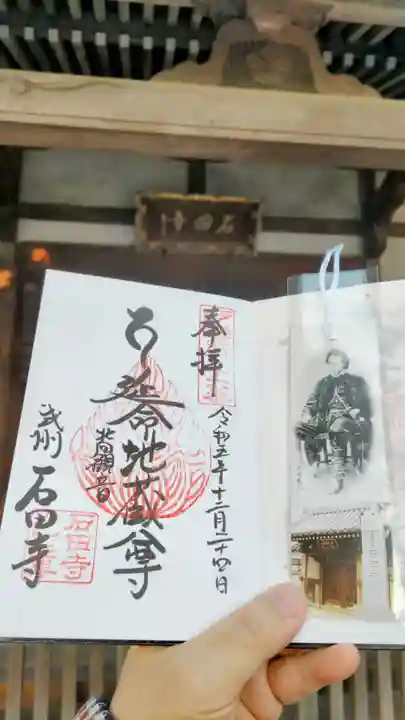 石田寺
奉拝
令和五年十二月二十四日
延命地蔵尊
武州 石田寺
石田寺